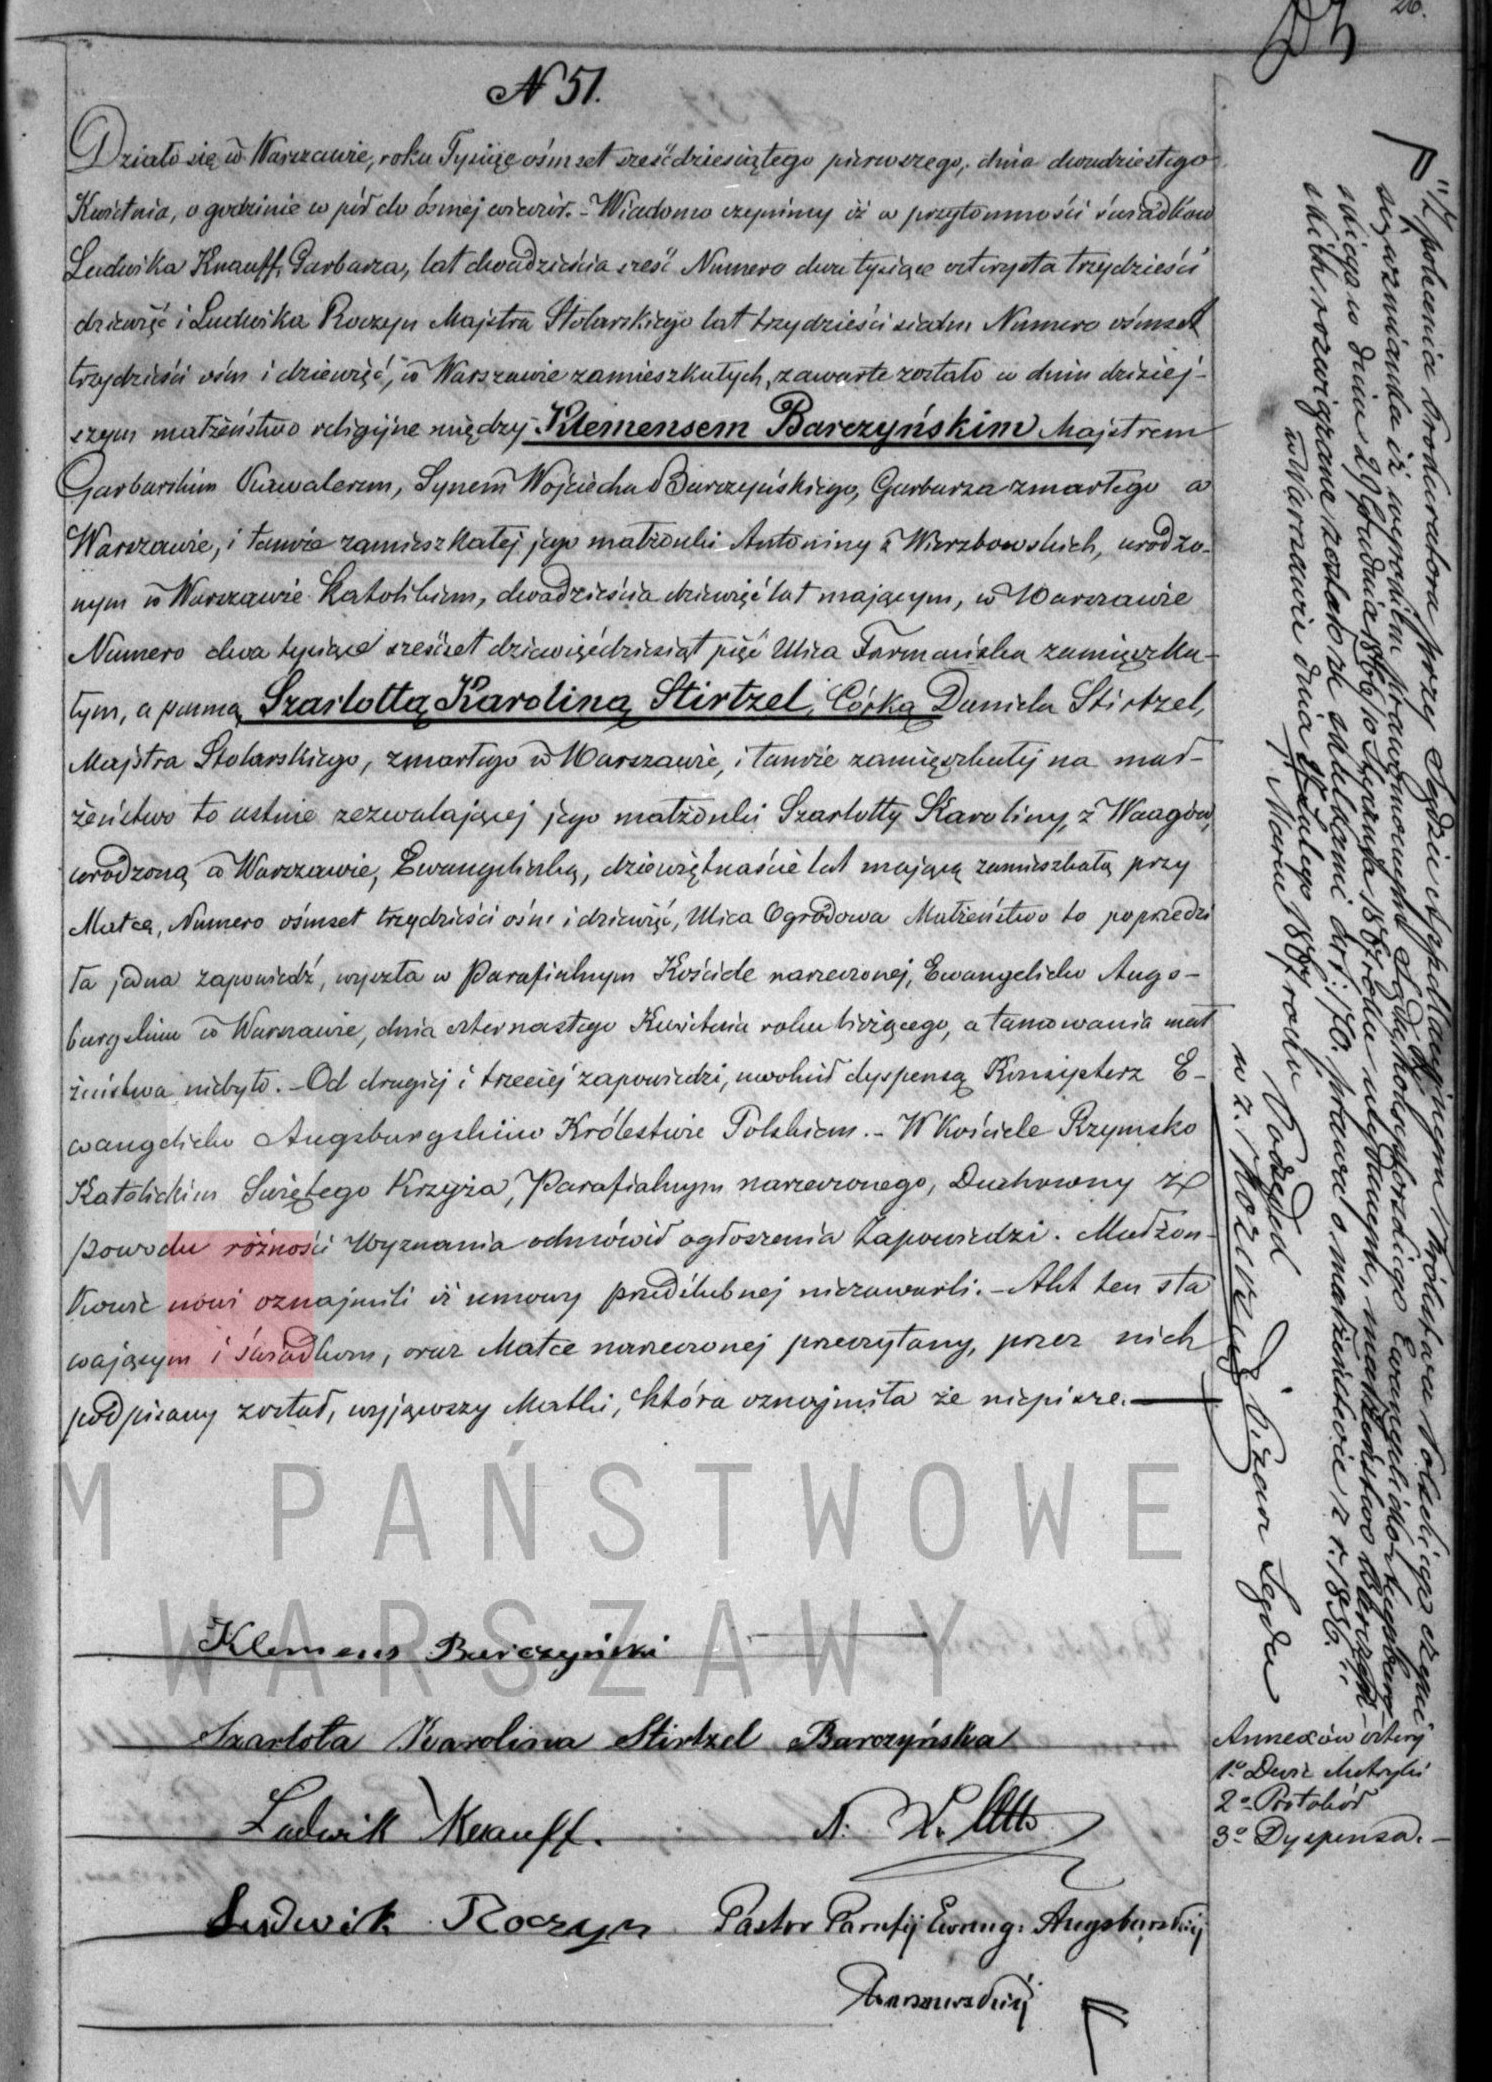 26.
N 51.
Działo się w Warszawie, roku Tysiąc ośmset sześćdziesiątego pierwszego, dnia dwudziestego
Kwietnia, o godzinie w pół do ósmej wieczór. – Wiadomo czynimy iż w przytomności świadków
Ludwika Knauff, Garbarza, lat dwadzieścia sześć Numero dwa tysiące czterysta trzydzieści
dziewięć i Ludwika Roczyn Majstra Stolarskiego lat trzydzieści siedm Numero ośmset
trzydzieści ośm i dziewięć, w Warszawie zamieszkałych, zawarte zostało w dniu dzisiej-
szym małżeństwo religijne między Klemensem Barczyńskim Majstrem
Garbarskim Kawalerem, Synem Wojciecha Barczyńskiego, Garbarza zmarłego w
Warszawie, i tamże zamieszkałej jego małżonki Antoniny z Wierzbowskich, urodzo-
nym w Warszawie Katolikiem, dwadzieścia dziewięć lat mającym, w Warszawie
Numero dwa tysiące sześćset dziewięćdziesiąt pięć Ulica Furmańska zamieszka-
łym, a panną Szarlottą Karoliną Stirtzel, Córką Daniela Stirtzel,
Majstra Stolarskiego, zmarłego w Warszawie, i tamże zamieszkałej na mał-
żeństwo to ustnie zezwalającej jego małżonki Szarlotty Karoliny, z Waagów,
urodzoną w Warszawie, Ewangeliczką, dziewiętnaście lat mającą zamieszkałą przy
Matce, Numero ośmset trzydzieści ośm i dziewięć, Ulica Ogrodowa Małżeństwo to poprzedzi
ła jedna zapowiedź, wyszła w Parafialnym Kościele narzeczonej, Ewangelicko Augs-
burgskim w Warszawie, dnia czternastego Kwietnia roku bieżącego, a tamowania mał
żeństwa niebyło. – Od drugiej i trzeciej zapowiedzi, uwolnił dyspensą Konsystorz E-
wangelicko Augsburgskim w Królestwie Polskiem. – W Kościele Rzymsko
Katolickim Świętego Krzyża, Parafialnym narzeczonego, Duchowny z
powodu różności Wyznania odmówił ogłoszenia zapowiedzi. Małżon-
kowie nowi oznajmili iż umowy przedślubnej niezawarli. – Akt ten sta
wającym i świadkom, oraz Matce narzeczonej przeczytany, przez nich
podpisany został, wyjąwszy Matki, która oznajmiła że niepisze. –
Klemens Barczyński
Szarlota Karolina Stirtzel Barczyńska
Ludwik Knauff.
Ludwik Roczyn
Pastor Parafij Ewang: Augsburskiej
Warszawskiej
Z polecenia Prokuratora przy Sądzie Appellacyjnym Królestwa Polskiego czyni
się wzmianka iż wyrokiem prawomocnym Sądu Konsystorskiego Ewangelicko Augsburg-
skiego w dniu 29 Grudnia 1866/10 Stycznia 1867 roku wydanym, małżeństwo Barczyń-
skich rozwiązane zostało ze skutkami art: 170. prawa o małżeństwie z r. 1836.
w Warszawie dnia Lutego Marca 1867 roku
Podsędek
Pisarz Sądu
Annexów cztery
1° Dwie Metryki
2° Protokół
3° Dyspensa. –
M PAŃSTWOWE
WARSZAWY